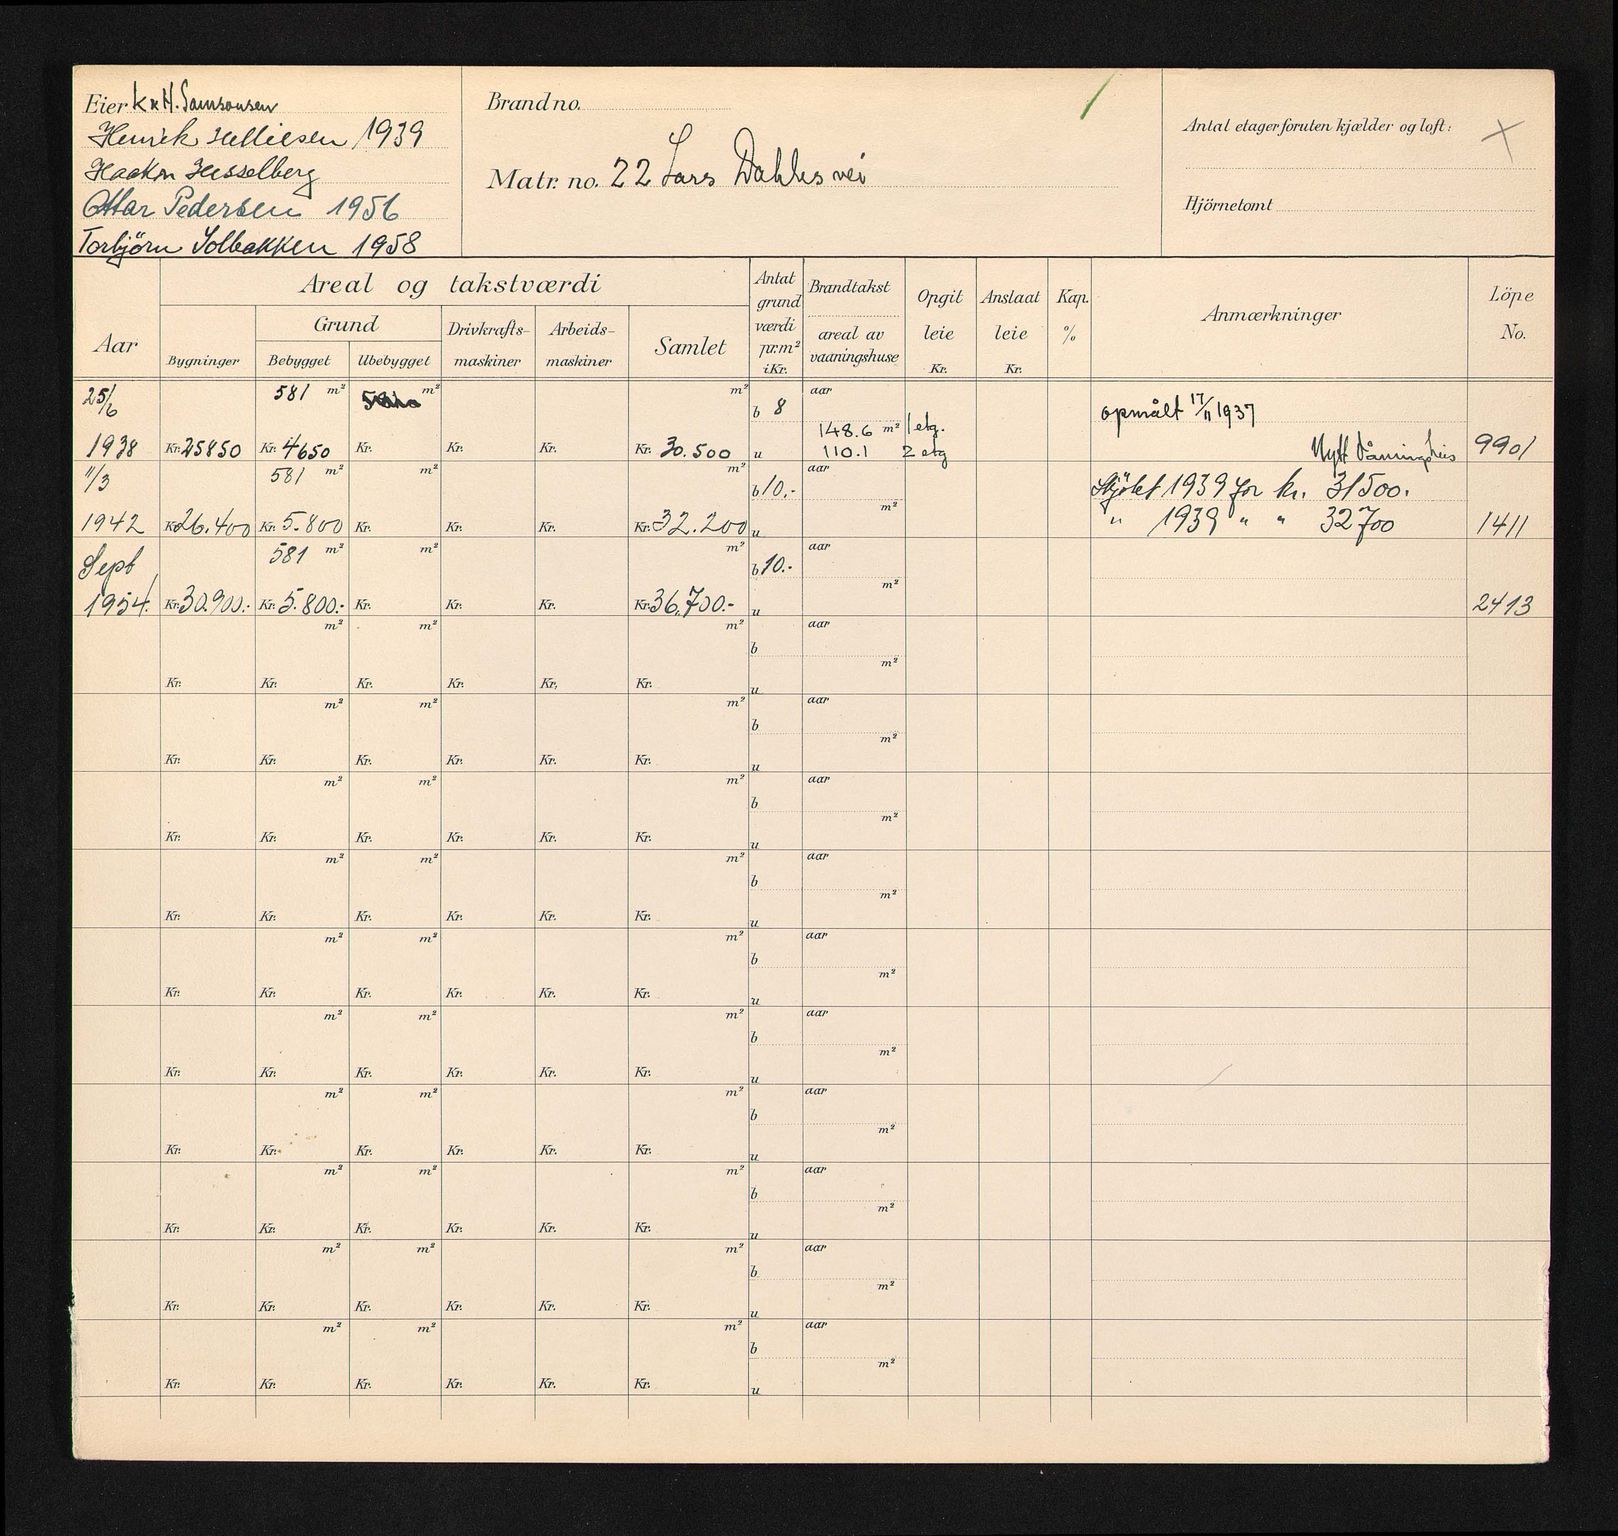 Eier K & H. Samsonsen
Henrik Helliesen 1939
Haakon Hesselberg
Ottar Pedersen 1956
Torbjörn Solbakken 1958
Brand no.
Matr. no. 22 Lars Dahles vei
Antal etager foruten kjælder og loft:
Hjörnetomt
Areal og takstværdi
Grund
Aar
Bygninger
Bebygget
Ubebygget
Drivkrafts-
maskiner
Arbeids-
maskiner
Samlet
Antat
grund
værdi
pr.m²
i Kr.
Brandtakst
areal av
vaaningshuse
Opgit
leie
Kr.
Anslaat
leie
Kr.
Kap.
%
Anmærkninger
Löpe
No.
25/6 581 m² m² m² b 8 aar opmålt 17/11 1937
148.6 m² 1 etg.
1938 Kr. 25850 Kr. 4650 Kr. Kr. Kr. Kr. 30.500 u 110.1 2 etg Nytt Våningshus 9901
11/3 581 m² m² m² b 10,- aar Skjötet 1939 for kr. 31500.
1942 Kr. 26.400 Kr. 5.800 Kr. Kr. Kr. Kr. 32.200 u m² " 1939 " " 32700 1411
Sept 581 m² m² m² b 10.- aar
1954. Kr. 30.900.- Kr. 5.800.- Kr. Kr. Kr. Kr. 36.700.- u m² 2413
m² m² m² b aar
Kr. Kr. Kr. Kr. Kr. Kr. u m²
m² m² m² b aar
Kr. Kr. Kr. Kr. Kr. Kr. u m²
m² m² m² b aar
Kr. Kr. Kr. Kr. Kr. Kr. u m²
m² m² m² b aar
Kr. Kr. Kr. Kr. Kr. Kr. u m²
m² m² m² b aar
Kr. Kr. Kr. Kr. Kr. Kr. u m²
m² m² m² b aar
Kr. Kr. Kr. Kr. Kr. Kr. u m²
m² m² m² b aar
Kr. Kr. Kr. Kr. Kr. Kr. u m²
m² m² m² b aar
Kr. Kr. Kr. Kr. Kr. Kr. u m²
m² m² m² b aar
Kr. Kr. Kr. Kr. Kr. Kr. u m²
m² m² m² b aar
Kr. Kr. Kr. Kr. Kr. Kr. u m²